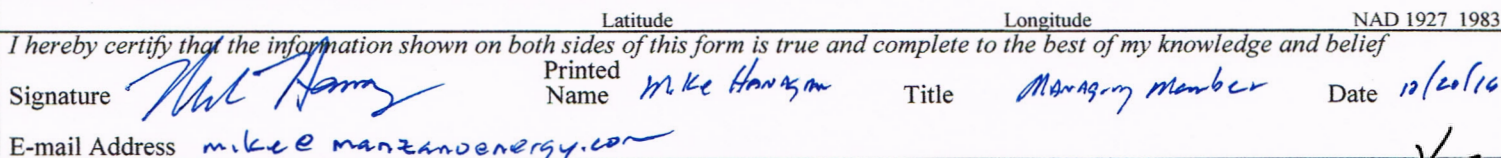 Latitude Longitude NAD 1927 1983
I hereby certify that the information shown on both sides of this form is true and complete to the best of my knowledge and belief
Signature Printed Name Mike Hanagan Title Managing Member Date 10/20/16
E-mail Address mike@manzanoenergy.com